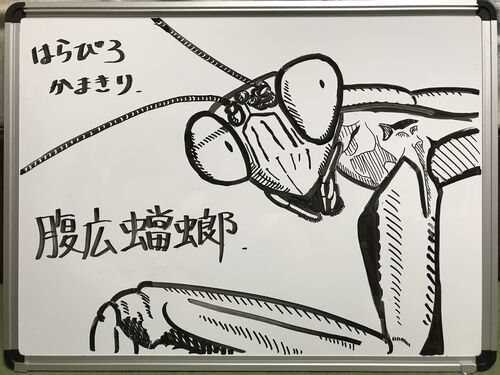 はらびろ
かまきり.
腹広蟷螂.